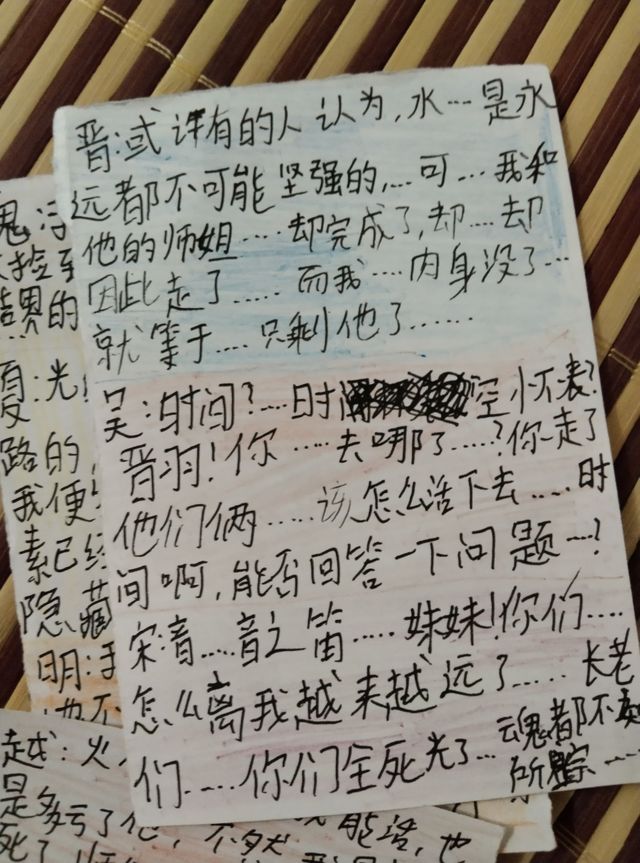 晋:或许有的人认为,水…是永
远都不可能坚强的,…可…我和
他的师姐……却完成了,却…却
因此走了……而我……内身没了…
就等于……只剩他了……
吴:时间?…时空怀表?
晋羽!你……去哪了……?你走了
他们俩……该怎么活下去……时
间啊,能否回答一下问题…?
宋:音……音之笛……妹妹!你们……
怎么离我越来越远了……长老
们……你们全死光了…魂都不知
所踪……
鬼
捡到
结界的
夏:光
路的,
我便
素已经
隐藏
明:于
也不
越:火,
是多亏了他,不然
能活,也
死了